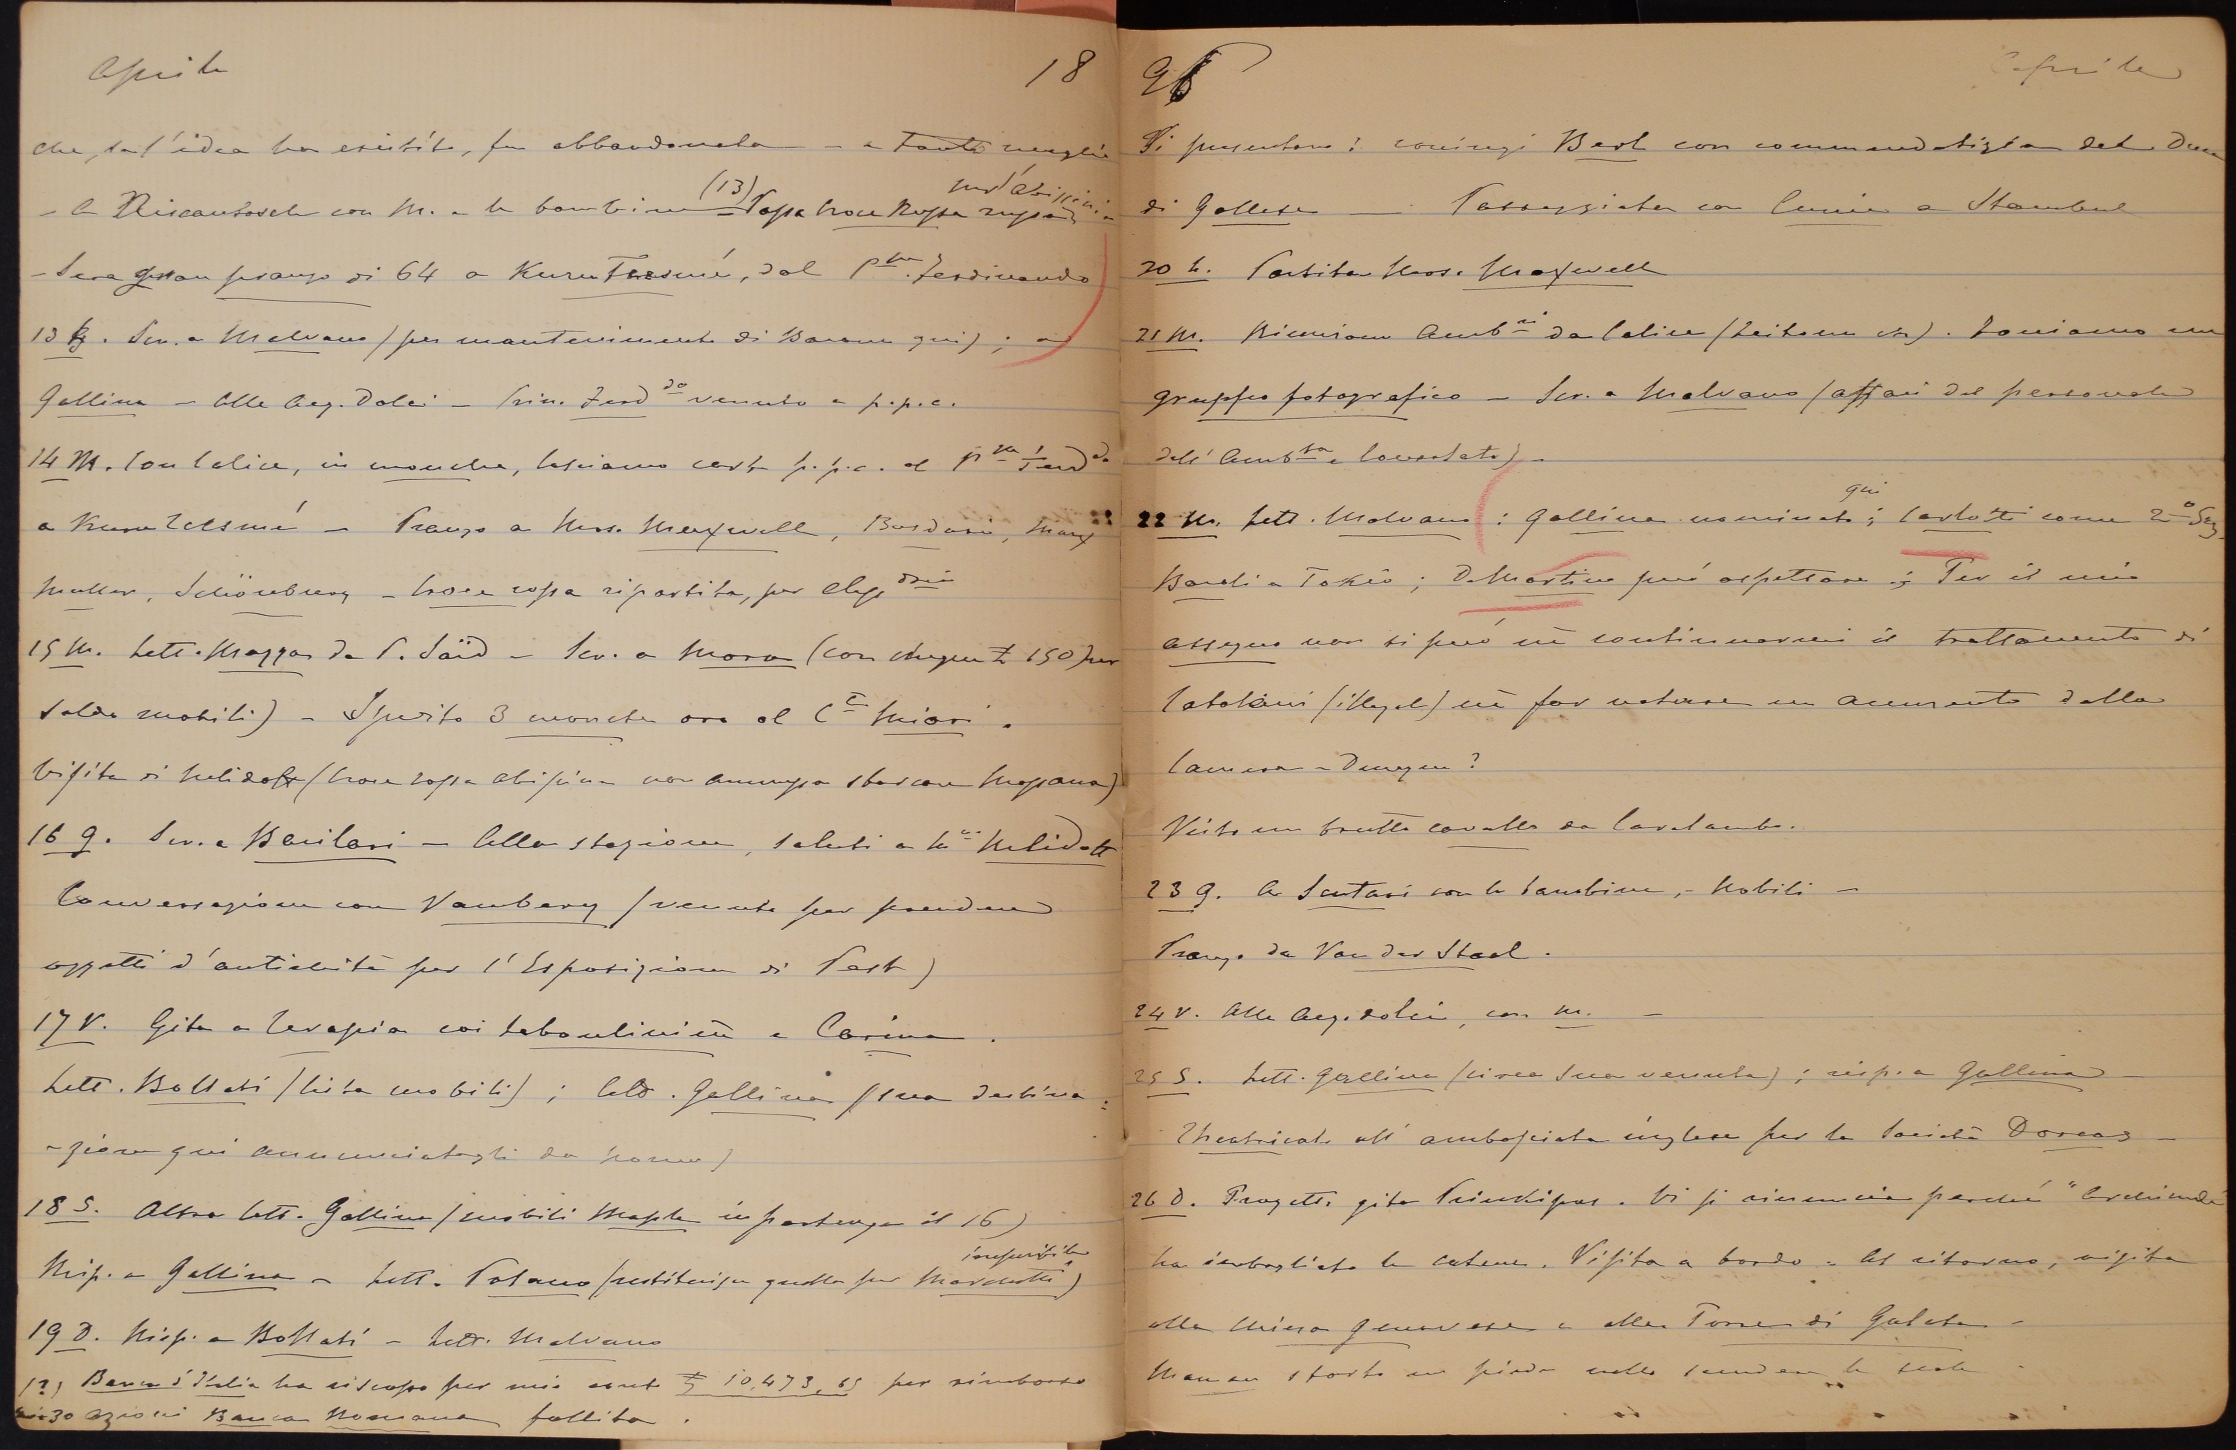 Aprile 18
che, se l'idea ha esistito, fu abbandonata - e tanto meglio
- A con M. e le bambine (13) Passa Croce Rossa russa per l'Abissinia
- Sera gran pranzo di 64 a KuruTcesmé, dal P.pe Ferdinando
13 . Scr. a Malvano (per mantenimento di qui) ; a
Gallina - Alle Acq. Dolci - Prin. Ferd.do venuto a p.p.c.
14 M. Con Calice, in mouche, lasciamo carte p.p.c. al P.pe Ferd.do
a KuruTcesmé - Pranzo a Mrs. Maxwell, , Max
Muller, Schönburg - Croce rossa ripartita, per Aless.dria
15 M. Lett. Mazza da P. Saïd - Scr. a Mora (con chèque £ 150 per
saldo mobili) - Spedito 3 mouche oro al C.te Miari.
Visita di Nelidoff (Croce rossa abissina non ammessa sbarcare Massaua)
16 G. Scr. a Bacilari - Alla stazione, saluti a M.me Nelidoff
Conversazione con Vambery (venuto per prendere
oggetti d'antichità per l'Esposizione di Pest)
17 V. Gita a Terapia coi e Carina.
Lett. Bollati (lista mobili) ; Lett. Gallina (sua destina=
-zione qui annunciatagli da Roma)
18 S. Altra lett. Gallina (mobili Maple in partenza il 16)
Risp. a Gallina - Lett. Patano (restituisce quella per Marchetti) impossibile
19 D. Risp. a Bollati - Lett. Malvano
(?) Banca d'Italia ha riscosso per mio conto £ 10,473,65 per rimborso
30 azioni Banca Romana fallita.
96 Aprile
Si presentano i coniugi Best con commendatizia del Duca
di Gallese — Passeggiata con a Stambul
20 L. Partita Mrs. Maxwell
21 M. Riunione Amb.ri da Calice (Zeitoun etc). Facciamo un
gruppo fotografico - Scr. a Malvano (affari del personale
dell'Amb.ta e Consolato) -
22 M. Lett. Malvano : Gallina nominato qui ; Carlotti come 2.o Seg.
a Tokio ; DeMartino può aspettare ; Per il mio
assegno non si può nè continuarmi il trattamento di
Catalani (illegale) nè far votare un aumento dalla
Camera - Dunque?
Visto un brutto cavallo da
23 G. A Scutari con le bambine, - Nobili -
Pranzo da Van der Stael.
24 V. Alle Acq. dolci, con M. -
25 S. Lett. Gallina (circa sua venuta) ; risp. a Gallina -
Theatricals all'ambasciata inglese per la Società Dorcas -
26 D. Progetto gita Prinkipos. Vi si rinuncia perchè "Archimede"
ha imbrogliate le catene. Visita a bordo - Al ritorno, visita
alla chiesa Genovese e alla Torre di Galata -
Maman storto un piede nello scendere le scale -